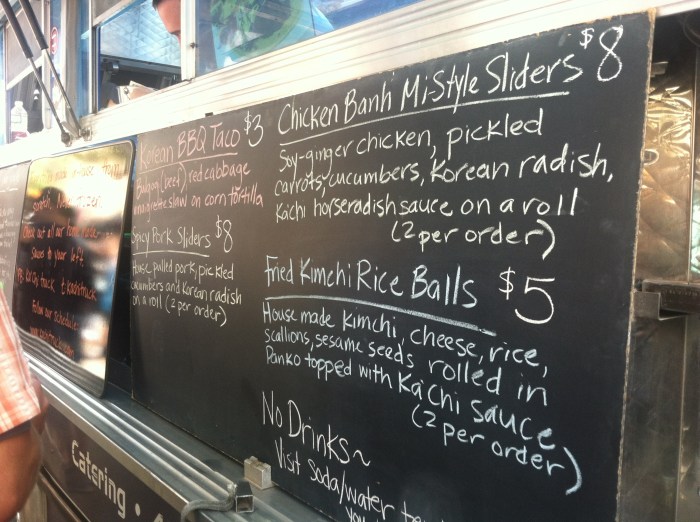 Korean BBQ Taco $3
Bulgogi (beef) red cabbage
vinaigrette slaw on corn tortilla
Spicy Pork Sliders $8
House pulled pork, pickled
cucumbers and Korean radish
on a roll (2 per order)
Chicken Banh Mi-Style Sliders $8
Soy-ginger chicken, pickled
carrots, cucumbers, Korean radish,
Kachi horseradish sauce on a roll
(2 per order)
Fried Kimchi Rice Balls $5
House made Kimchi, cheese, rice,
scallions, sesame seeds rolled in
Panko topped with Kachi sauce
(2 per order)
No Drinks~
Visit soda/water
Check out all our
to your left
Follow our schedule
Catering •